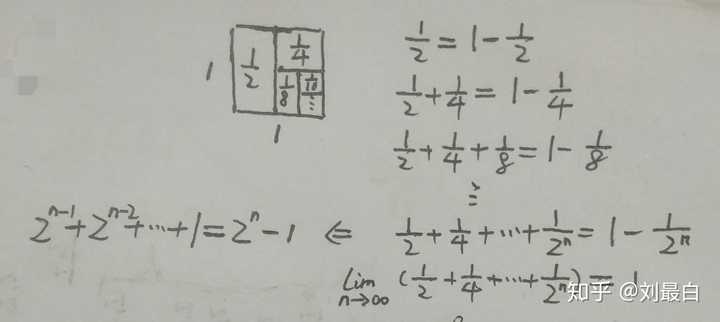 1/2 1/4 1/8 1/16 ⋮
1
1
1/2 = 1 - 1/2
1/2 + 1/4 = 1 - 1/4
1/2 + 1/4 + 1/8 = 1 - 1/8
⋮
2^{n-1} + 2^{n-2} + ... + 1 = 2^n - 1 ⇐ 1/2 + 1/4 + ... + 1/2^n = 1 - 1/2^n
lim n→∞ (1/2 + 1/4 + ... + 1/2^n) = 1
知乎 @刘最白